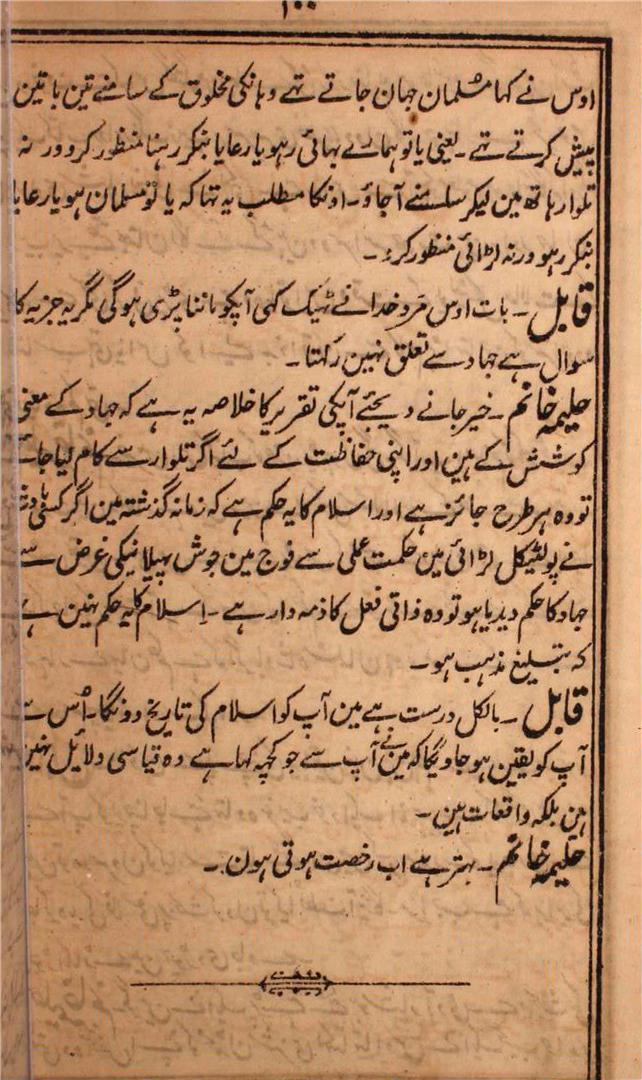 ۱۰۰
اوس نے کہا مسلمان جہان جاتے تہے وہانکی مخلوق کے سامنے تین باتین
پیش کرتے تہے ۔ یعنی یا تو ہمارے بہائی رہو یا رعایا بنکر رہنا منظور کرو ورنہ
تلوار ہاتھ مین لیکر سامنے آجاؤ ۔ اونکا مطلب یہ تہا کہ یا تو مسلمان ہو یا رعایا
بنکر رہو ورنہ لڑائی منظور کرو ۔
قابل ۔ بات اوس مرد خدا نے ٹہیک کہی آپکو ماننا پڑی ہوگی مگر یہ جزیہ کا
سوال ہے جہاد سے تعلق نہین رکہتا ۔
حلیمہ خانم ۔ خیر جانے دیجئے آپکی تقریر کا خلاصہ یہ ہے کہ جہاد کے معنی
کوشش کے ہین اور اپنی حفاظت کے لئے اگر تلوار سے کام لیا جائے
تو وہ ہر طرح جائز ہے اور اسلام کا یہ حکم ہے کہ زمانہ گذشتہ مین اگر کسی
نے پولٹیکل لڑائی مین حکمت عملی سے فوج مین جوش پہیلانیکی غرض سے
جہاد کا حکم دیدیا ہو تو وہ ذاتی فعل کا ذمہ دار ہے ۔ اسلام کا یہ حکم نہین ہے
کہ تبلیغ مذہب ہو ۔
قابل ۔ بالکل درست ہے مین آپ کو اسلام کی تاریخ دونگا ۔ اُس سے
آپ کو یقین ہو جاویگا کہ مین نے آپ سے جو کچہہ کہا ہے وہ قیاسی دلائل نہین
ہین بلکہ واقعات ہین ۔
حلیمہ خانم ۔ بہتر ہے اب رخصت ہوتی ہون ۔